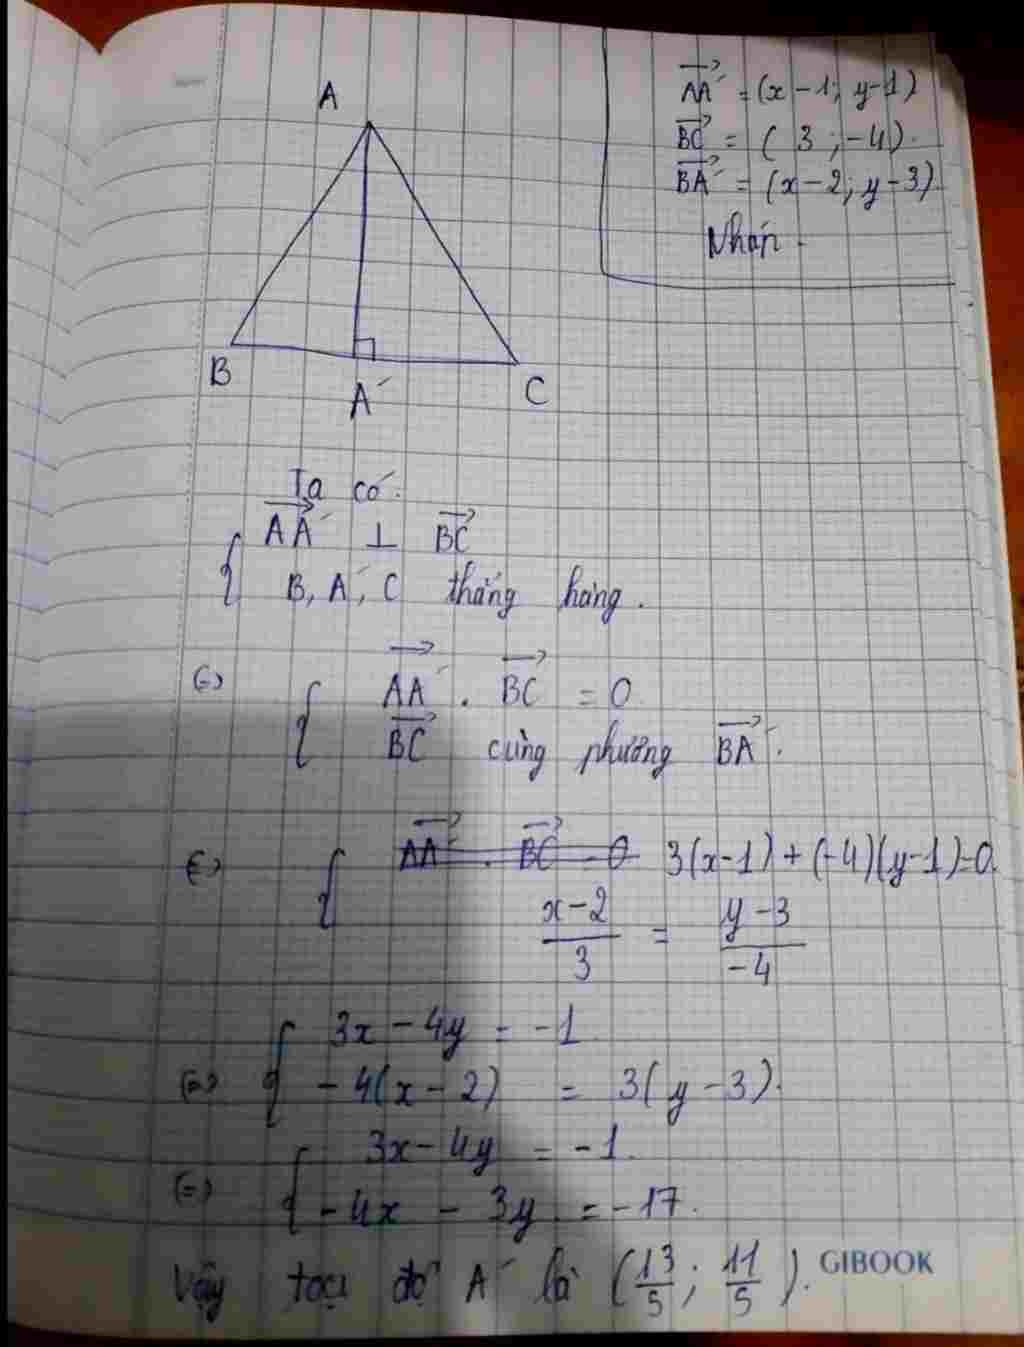 A
B
A'
C
AA' = (x - 1; y - 1)
BC = (3; -4).
BA' = (x - 2; y - 3)
Nháp.
Ta có:
{ AA' ⊥ BC
B, A', C thẳng hàng.
(=) { AA' . BC = 0
BC cùng phương BA'.
(=) { AA' . BC = 0 3(x-1) + (-4)(y-1) = 0
(x-2)/3 = (y-3)/-4
(=) { 3x - 4y = -1
-4(x - 2) = 3(y - 3).
(=) { 3x - 4y = -1.
-4x - 3y = -17.
Vậy toạ độ A' là (13/5; 11/5).
GIBOOK